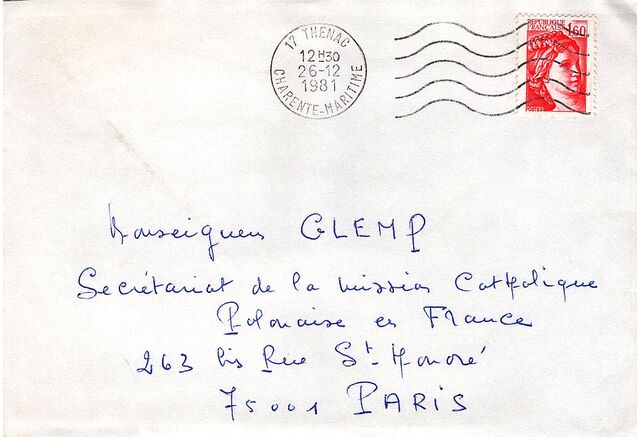 17 THENAC
12H30
26-12
1981
CHARENTE-MARITIME
REPUBLIQUE
FRANCAISE
1,60
POSTES
Monseigneur GLEMP
Secrétariat de la mission Catholique
Polonaise en France
263 bis Rue St-Honoré
75001 PARIS